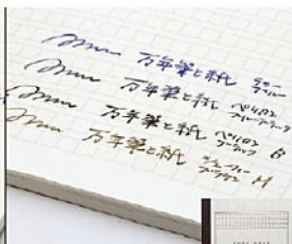 万年筆と紙 ブルー
万年筆と紙 ペリカン ブルーブラック
万年筆と紙 ペリカン ブラック B
万年筆と紙 ブラウン M